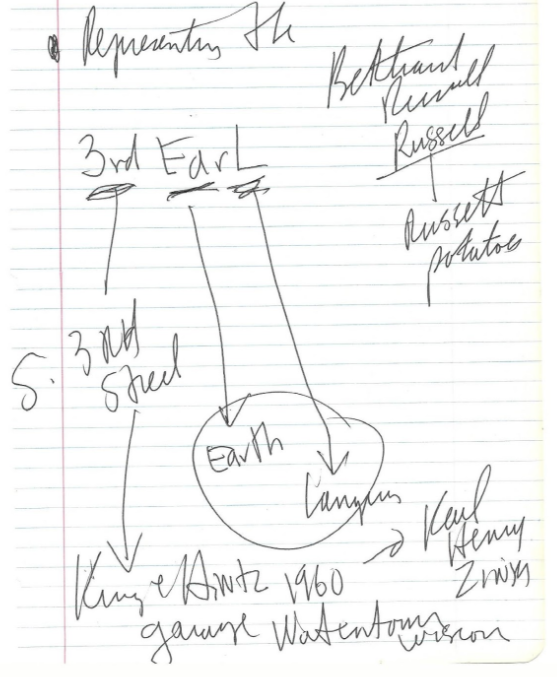 Representing the
Bertrand
Russell
Russell
3rd Earl
Russett
potatoes
S. 3rd
Street
Earth
King & Hintz 1960
Karl
Henry
garage Watertown